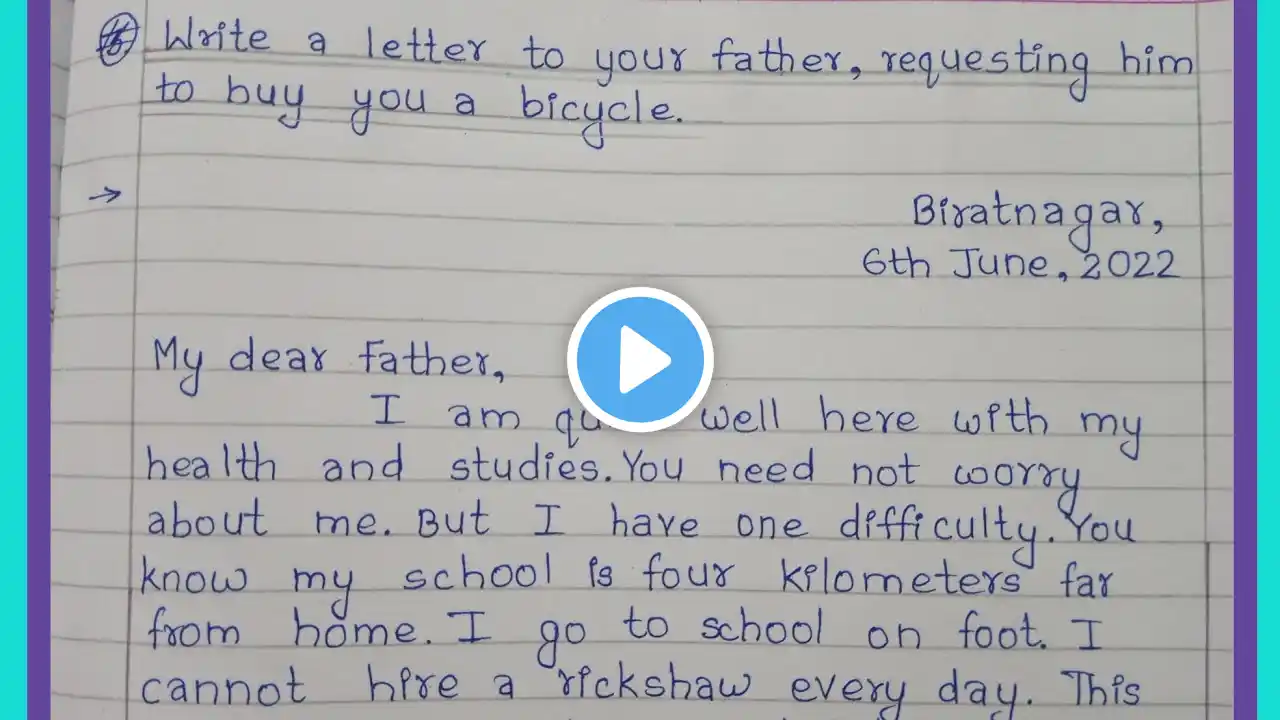 Write a letter to your father, requesting him
to buy you a bicycle.
→
Biratnagar,
6th June, 2022
My dear father,
I am well here with my
health and studies. You need not worry
about me. But I have one difficulty. You
know my school is four kilometers far
from home. I go to school on foot. I
cannot hire a rickshaw every day. This